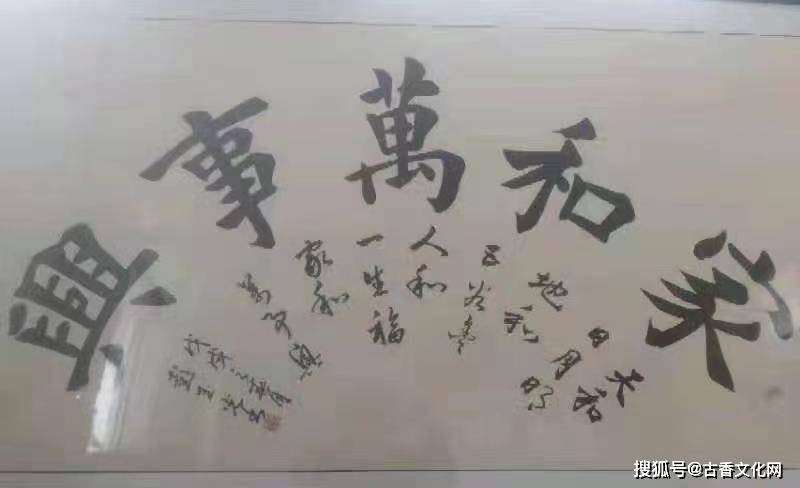 家和萬事興
天和
日月明
地和
五谷豊
人和
一生福
家和
萬事興
搜狐号@古香文化网